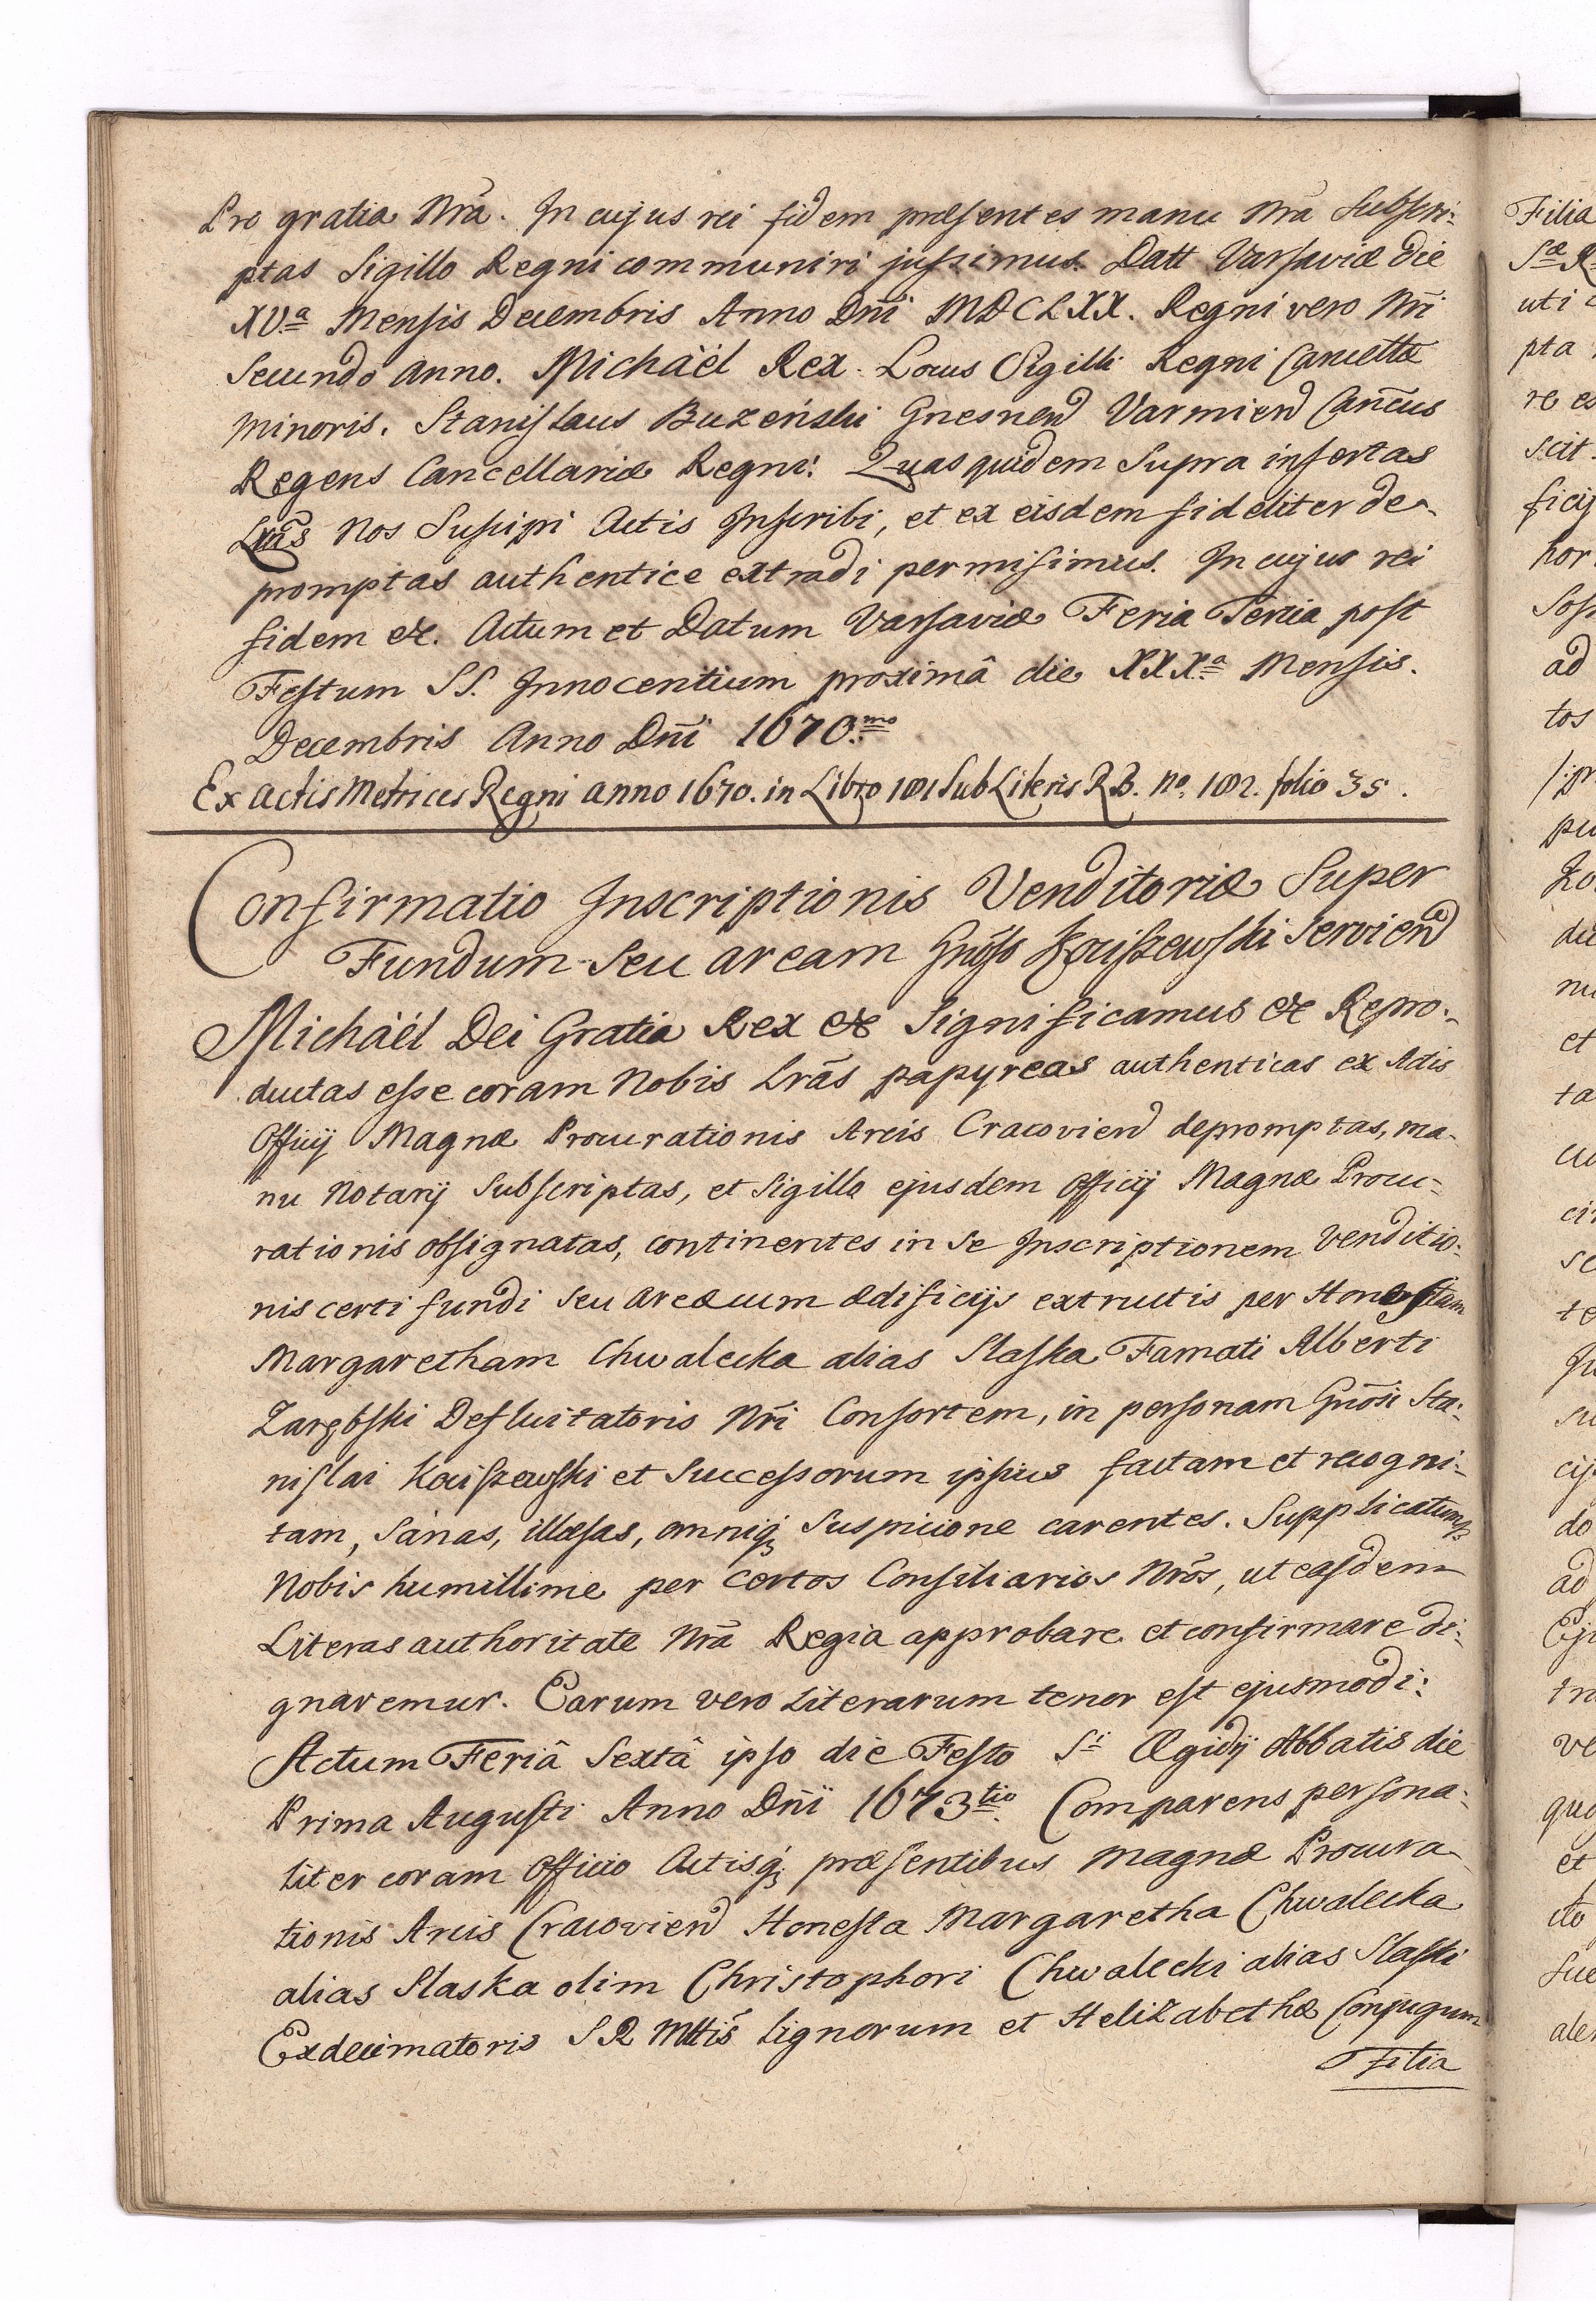 Pro gratia Nrã. In cujus rei fidem præsentes manu Nrã Subscri-
ptas Sigillo Regni communiri jussimus. Datt Varsaviæ die
XVª Mensis Decembris Anno Dñi MDCLXX. Regni vero Nri
Secundo Anno. Michäel Rex. Locus Sigilli Regni Cancellæ
minoris. Stanislaus Buzeński Gnesnen Varmien Cañcus
Regens Cancellariæ Regni. Quas quidem Supra insertas
Lrãs Nos Suscipi Actis Inscribi, et ex eisdem fideliter de-
promptas authentice extradi permisimus. In cujus rei
fidem &c. Actum et Datum Varsaviæ Feria Tertia post
Festum SS. Innocentium proximâ die XXXª Mensis.
Decembris Anno Dñi 1670.mo
Ex Actis Metrices Regni anno 1670. in Libro 181 Sub Literis R.B. No. 182. folio 35.
Confirmatio Inscriptionis Venditoriæ Super
Fundum Seu aream Gnõso Kaiszewski Servien
Michäel Dei Gratia Rex &c Significamus &c Repro-
ductas esse coram Nobis Lrãs papyreas authenticas ex Actis
Officij Magnæ Procurationis Arcis Cracovien depromptas, ma-
nu Notarij Subscriptas, et Sigillo ejusdem Officij Magnæ Procu-
rationis obsignatas, continentes in Se Inscriptionem Venditio-
nis certi fundi Seu areæ cum ædificijs extructis per Honestam
Margaretham Chwalecka alias Slaska Famati Alberti
Zarębski Defluitatoris Nri Consortem, in personam Gnõsi Sta-
nislai Kaiszewski et Successorum ipsius factam et recogni-
tam, Sanas, illæsas, omniq Suspicione carentes. Supplicatumq
Nobis humillime per certos Consiliarios Nrõs, ut easdem
Literas authoritate Nrã Regia approbare et confirmare di-
gnaremur. Earum vero Literarum tenor est ejusmodi:
Actum Feriâ Sextâ ipso die Festo Sti Ægidij Abbatis die
Prima Augusti Anno Dñi 1673tio. Comparens persona-
liter coram Officio Actisq præsentibus Magnæ Procura-
tionis Arcis Cracovien Honesta Margaretha Chwalecka
alias Slaska olim Christophori Chwalecki alias Slaski
Exdecimatoris S R Mttis Lignorum et Helizabethæ Conjugum
Filia